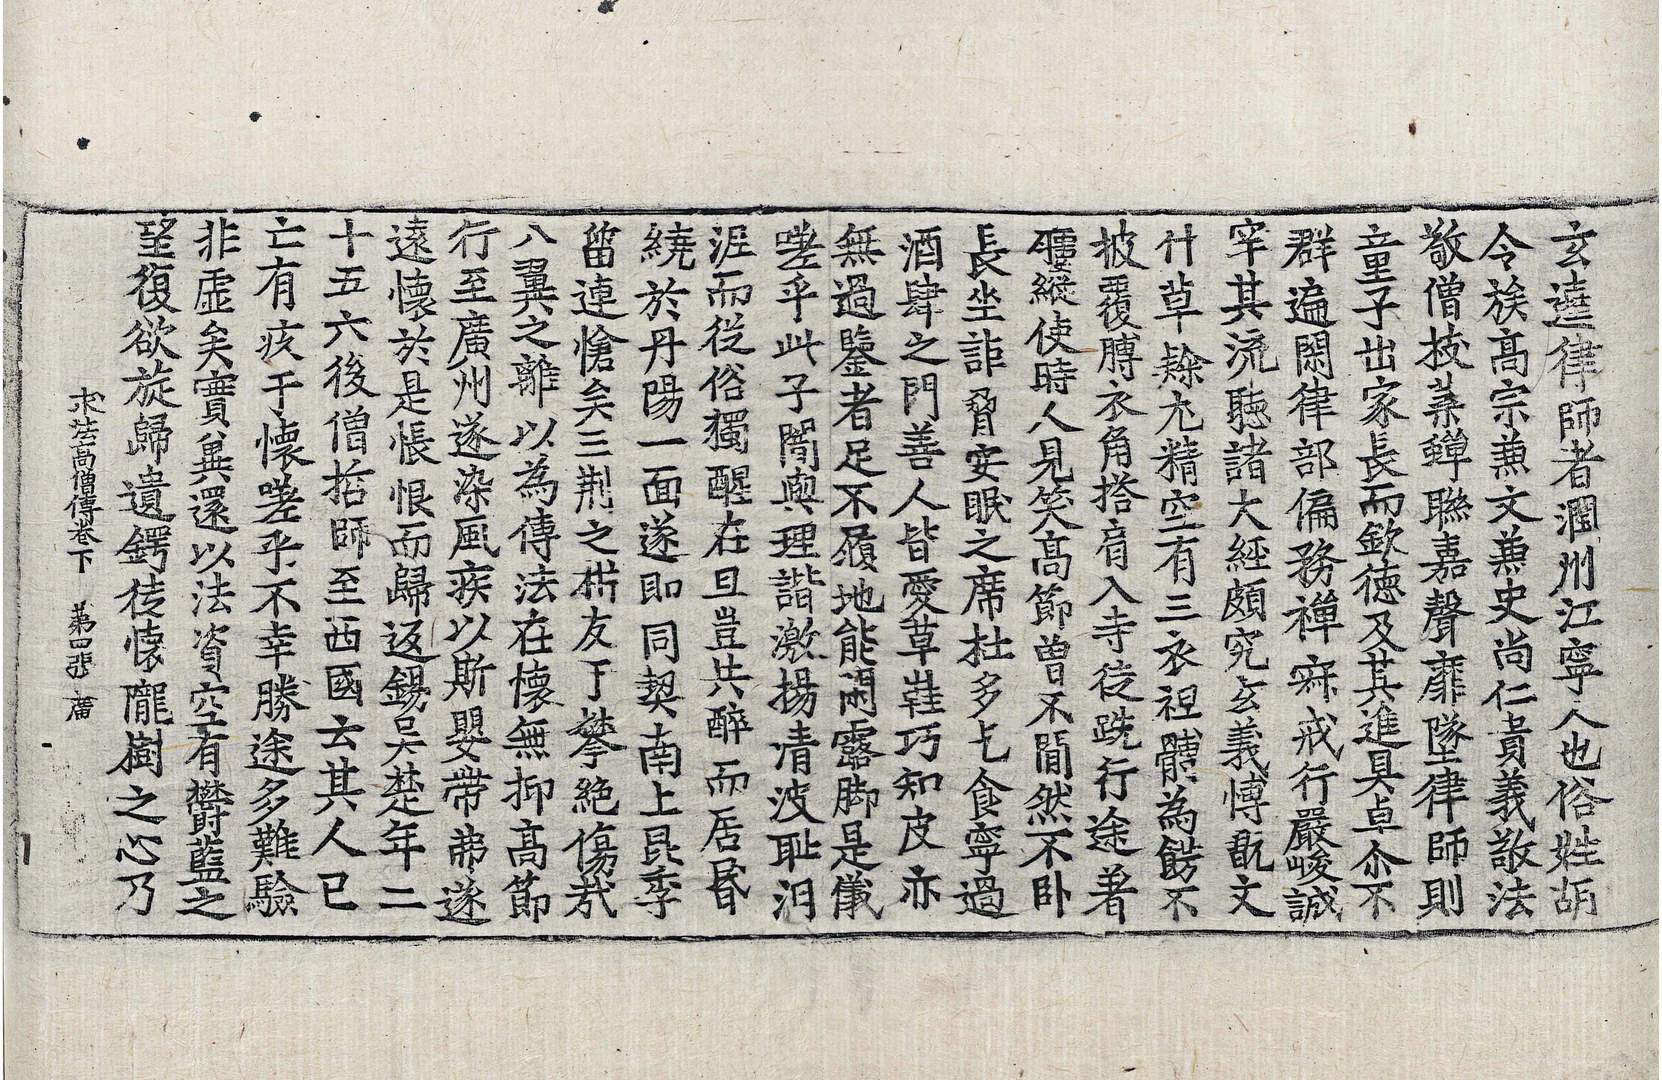 玄逵律師者潤州江寧人也俗姓胡
令族高宗兼文兼史尚仁貴義敬法
敬僧枝葉蟬聯嘉聲靡墜律師則
童子出家長而欽德及其進具卓尒不
群遍閑律部偏務禪寂戒行嚴峻誠
罕其流聽諸大經頗究玄義博翫文
什草隸尤精空有三衣袒髆為飾不
披覆膊衣角搭肩入寺徒跣行途著
屨縱使時人見笑高節曾不間然不臥
長坐詎脅安眠之席杜多乞食寧過
酒肆之門善人皆愛草鞋巧知皮亦
無過鑒者足不履地能閑露脚是儀
嗟乎此子闇與理諧激揚清波耻汨
泥而從俗獨醒在旦豈共醉而居昏
繞於丹陽一面遂即同契南上昆季
留連愴矣三荆之析友于攀絕傷哉
八翼之離以為傳法在懷無抑高節
行至廣州遂染風疾以斯嬰帶弗遂
遠懷於是悵恨而歸返錫吳楚年二
十五六後僧哲師至西國云其人已
亡有疚于懷嗟乎不幸勝途多難驗
非虛矣實冀還以法資空有欝藍之
望復欲旋歸遺鍔徒懷龐樹之心乃
求法高僧傳卷下　第四張　廣